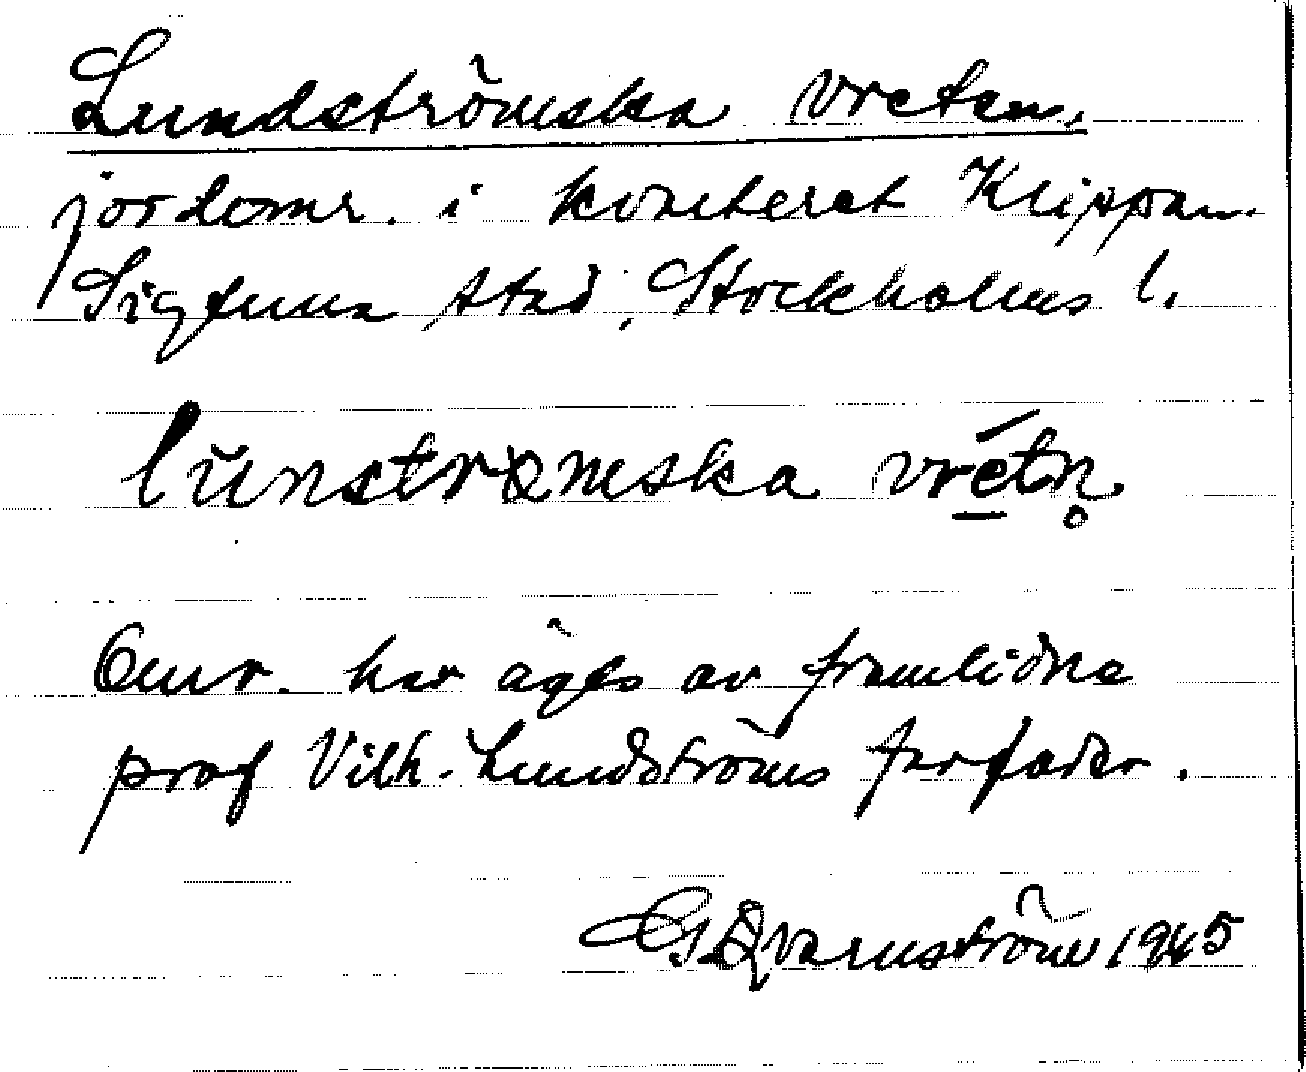 Lundströmska vreten.
jordomr. i kvarteret Klippan.
Sigtuna stad, Stockholms l.
lu̇nstrømska vré̲tn̥
Omr. har ägts av framlidne
prof Vilh. Lundströms farfader.
G. Qvarnström 1945